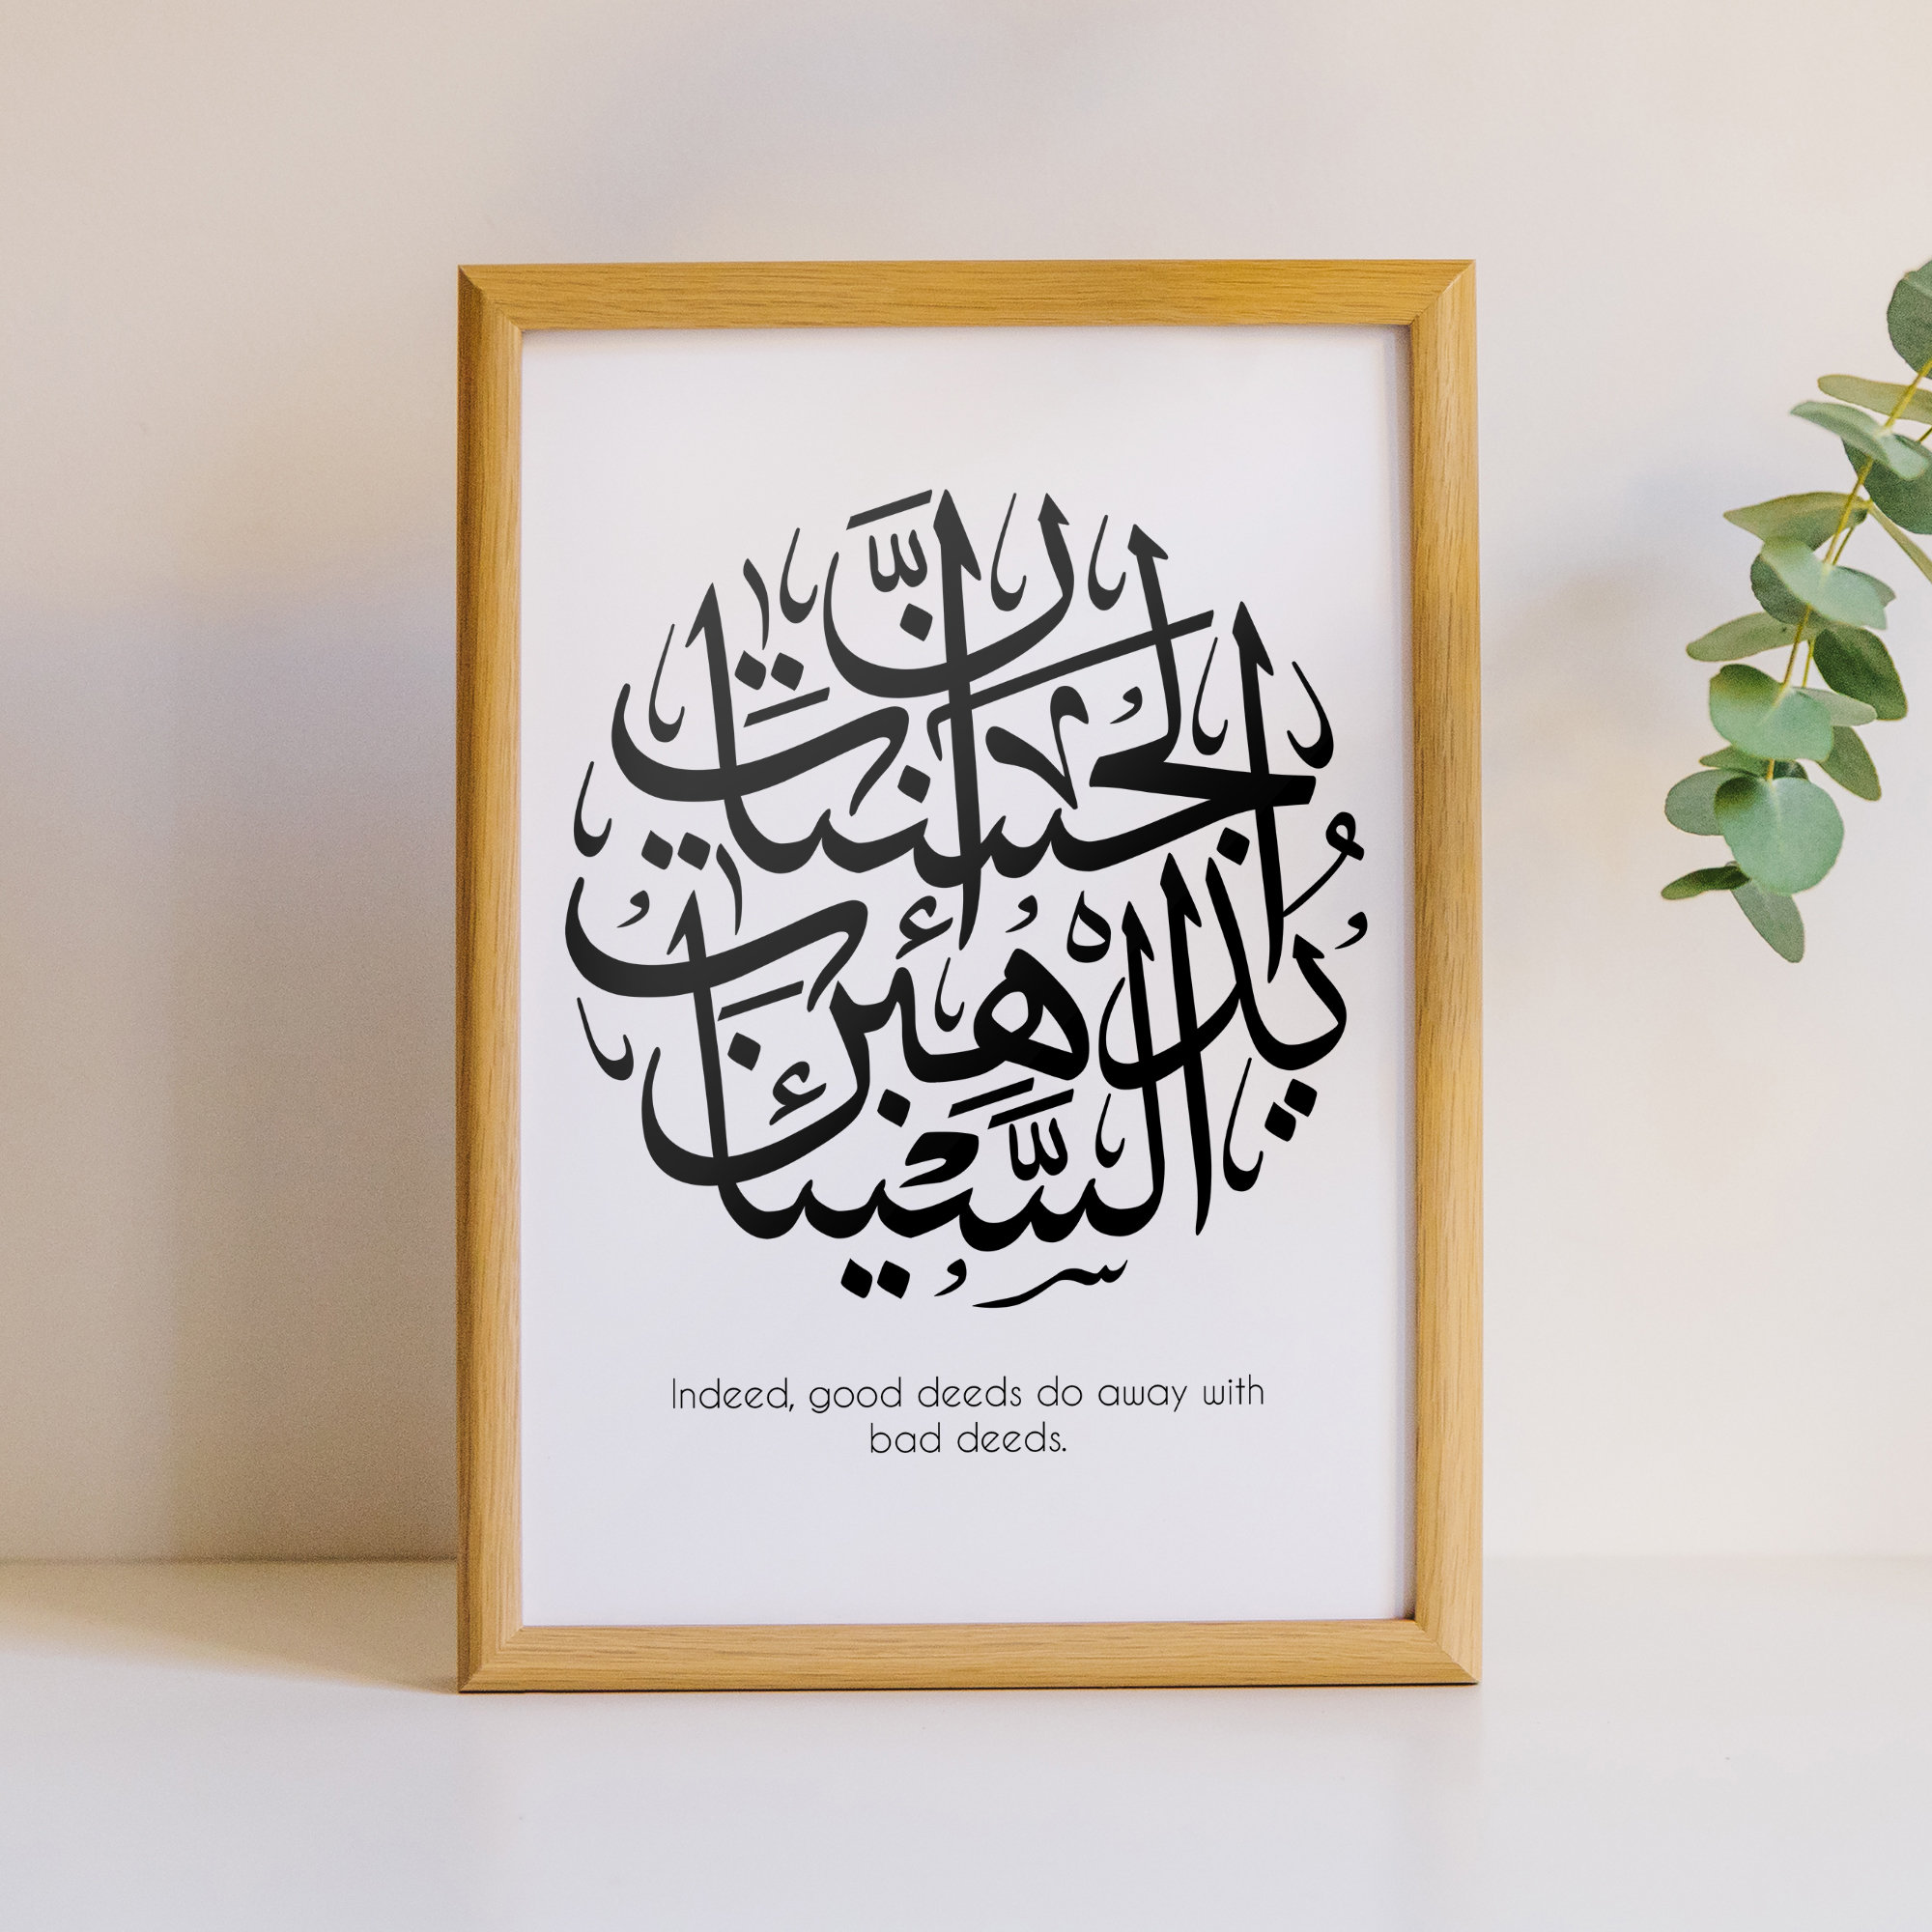 إِنَّ الْحَسَنَاتِ
يُذْهِبْنَ السَّيِّئَاتِ
Indeed, good deeds do away with
bad deeds.